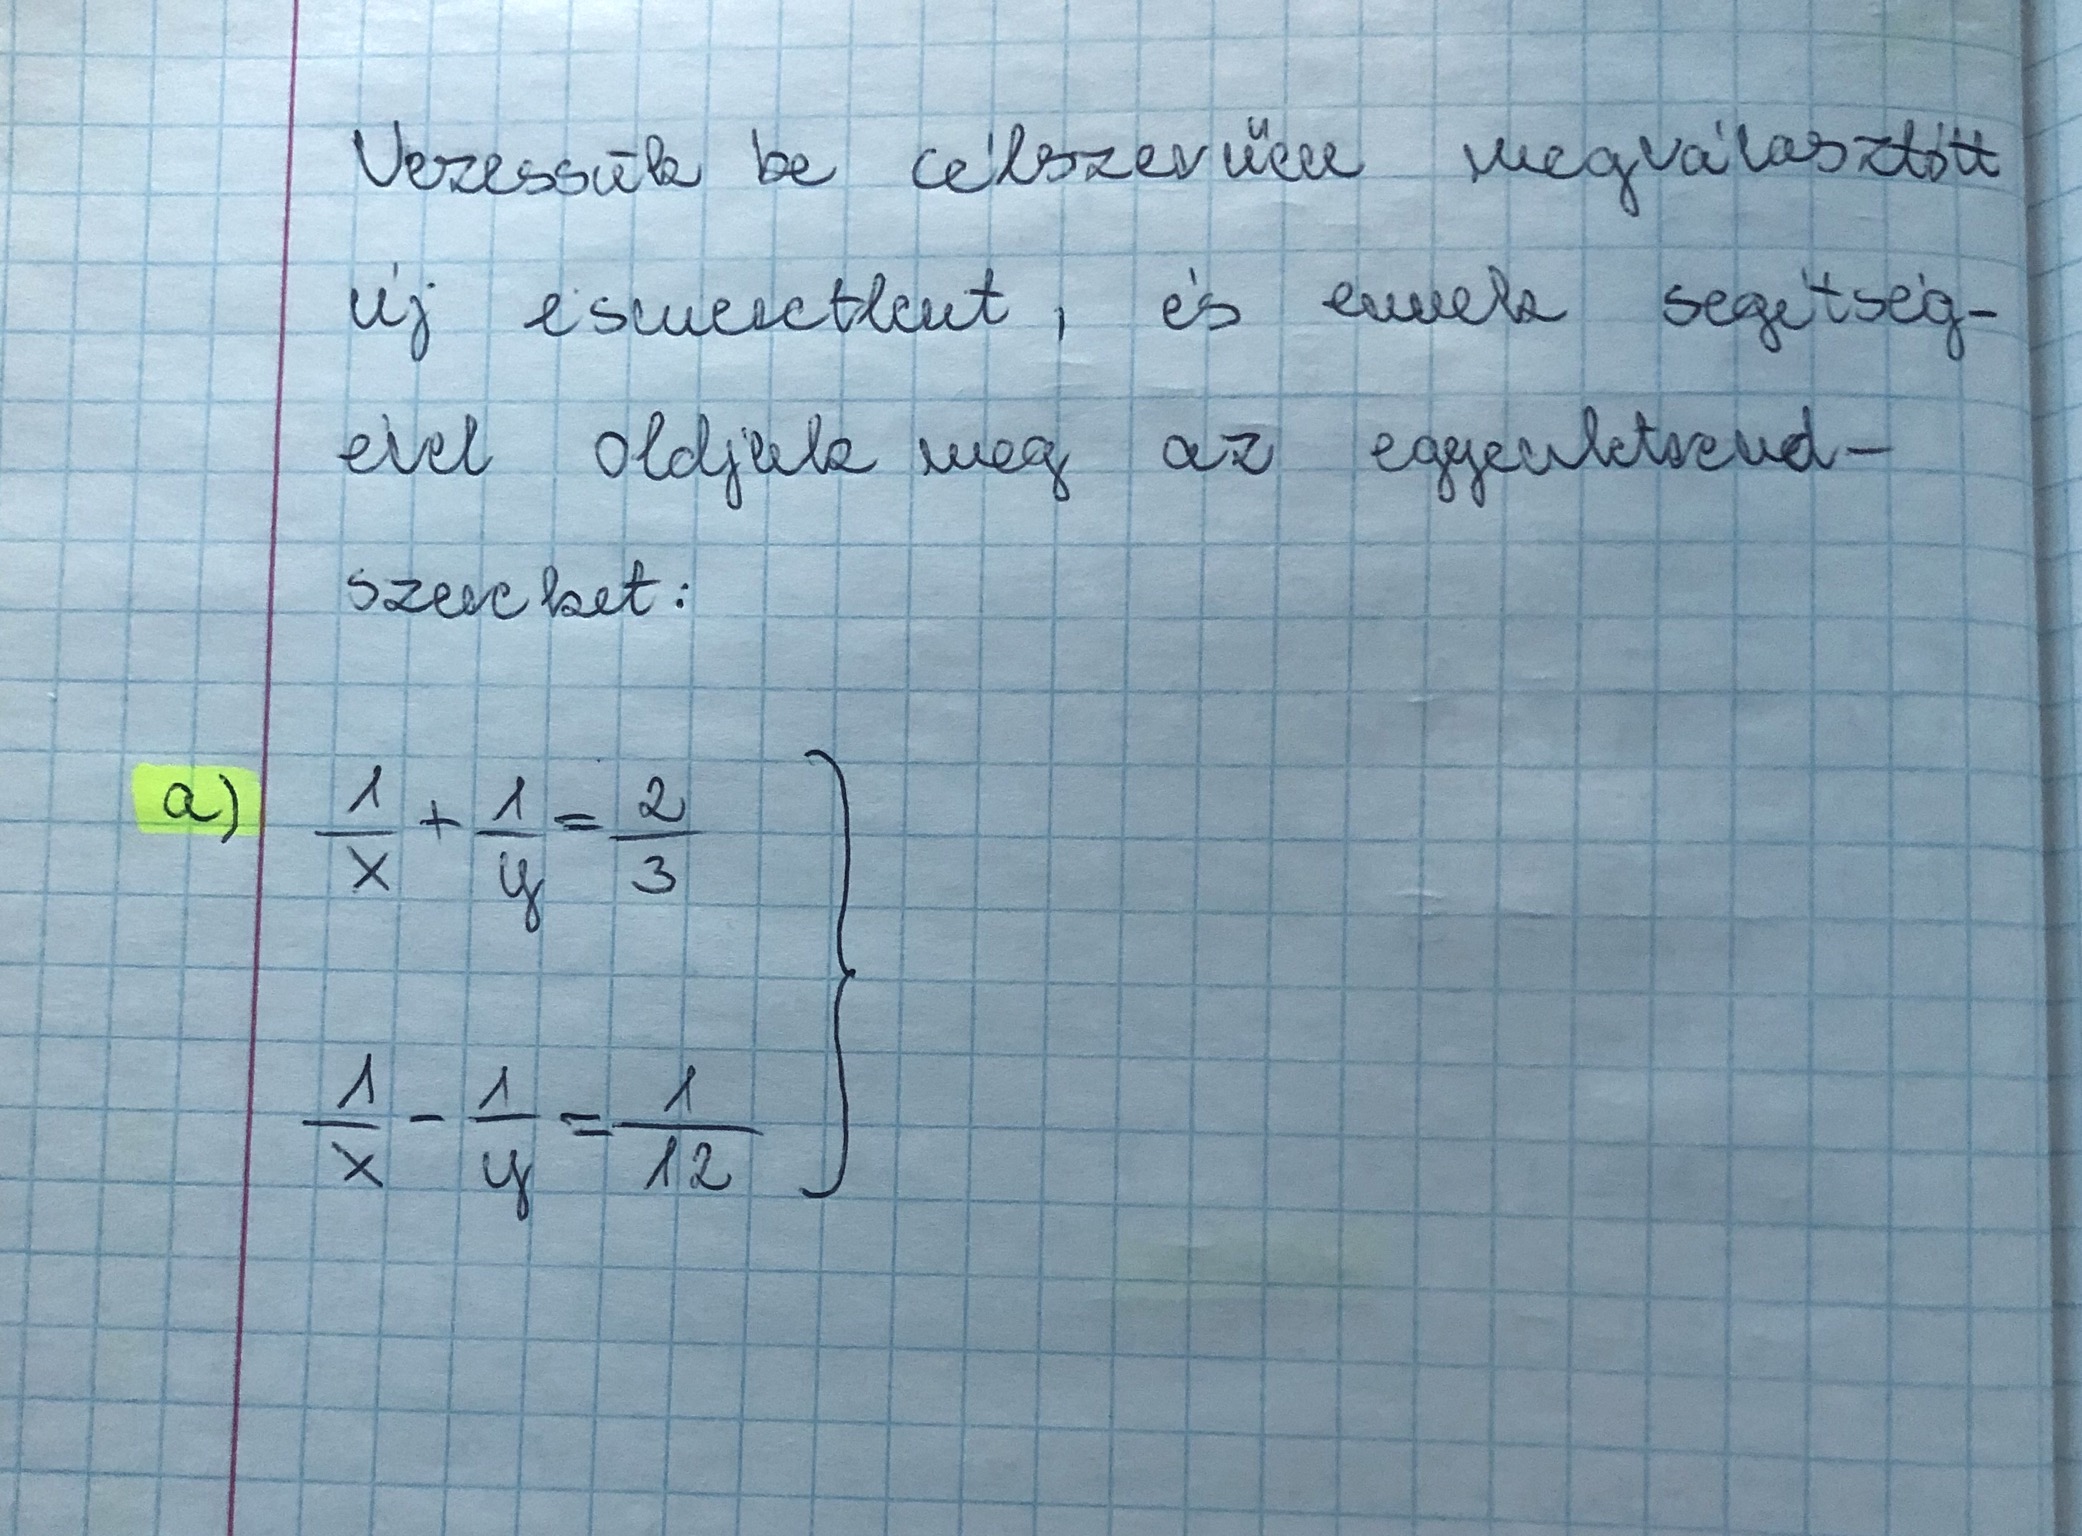 Vezessük be célszerűen megválasztott
új ismeretlent, és ennek segítség-
ével oldjuk meg az egyenletrend-
szereket:
a) 1/x + 1/y = 2/3
1/x - 1/y = 1/12